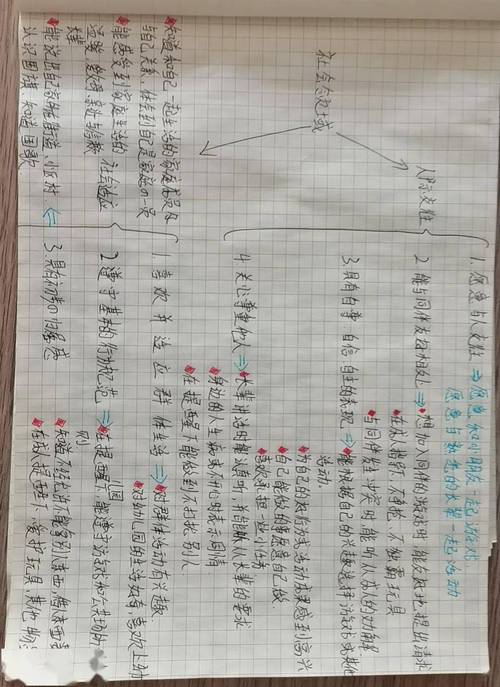 社会领域
人际交往
1. 愿意与人交往 ⇒ 愿意和小朋友一起游戏
愿意与熟悉的长辈一起活动
2 能与同伴友好相处 ⇒ 想加入同伴的游戏时能友好地提出请求
在成人指导下,不争抢、不独霸玩具
与同伴发生冲突时,能听从成人的劝解
3. 具有自尊 自信 自主的表现 ⇒ 能根据自己的兴趣选择游戏或其他
活动.
为自己的好行为或活动成果感到高兴
自己能做的事愿意自己做
喜欢承担一些小任务
4. 关心尊重他人 ⇒ 长辈讲话时能认真听,并能听从长辈的要求
身边的人生病或不开心时表示同情
在提醒下能做到不打扰别人
社会适应
1. 喜欢并适应群体生活 ⇒ 对群体活动有兴趣
对幼儿园的生活好奇,喜欢上幼
2 遵守基本的行为规范 ⇒ 在提醒下,能遵守游戏和公共场所
规则
知道不经允许不能拿别人东西,借东西要
在成人提醒下,爱护玩具,其他物
3. 具有初步的归属感
知道和自己一起生活的家庭成员及
与自己关系,体会到自己是家庭的一员
能感受到家庭生活的
温暖,
能说出自己的家街道、小区村
认识国旗,知道国歌